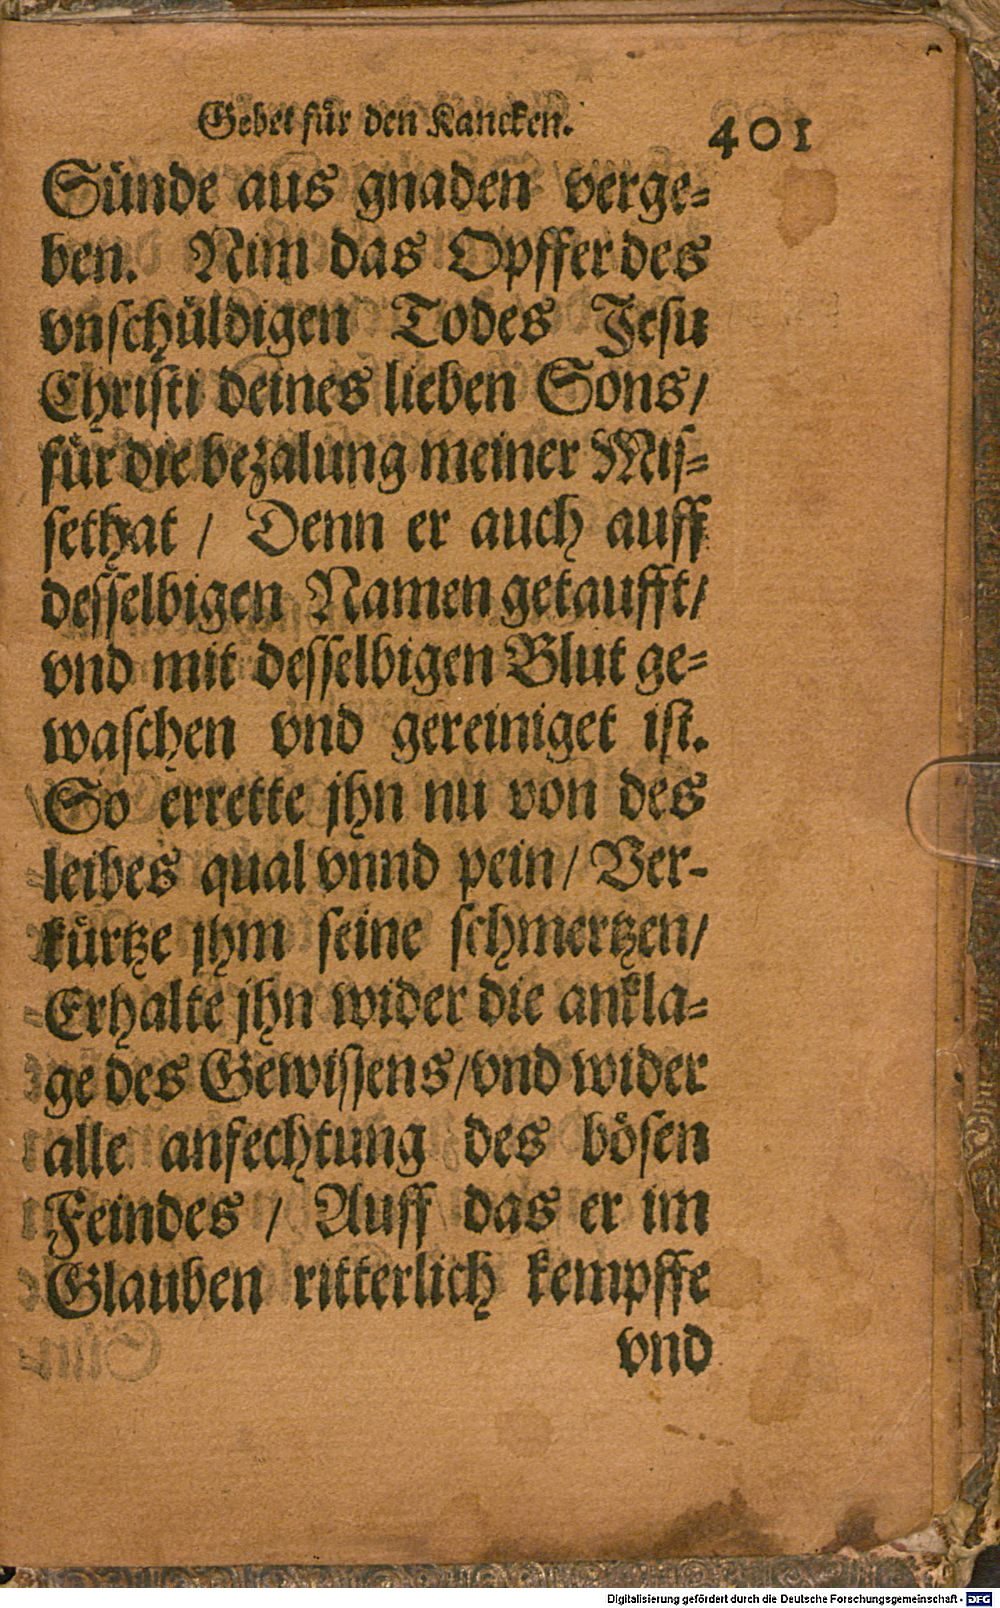 Gebet für den Kancken. 401
Sünde aus gnaden verge=
ben. Nim das Opffer des
vnschüldigen Todes Jesu
Christi deines lieben Sons/
für die bezalung meiner Mis=
sethat / Denn er auch auff
desselbigen Namen getaufft/
vnd mit desselbigen Blut ge=
waschen vnd gereiniget ist.
So errette jhn nu von des
leibes qual vnnd pein / Ver-
kürtze jhm seine schmertzen/
Erhalte jhn wider die ankla=
ge des Gewissens/vnd wider
alle anfechtung des bösen
Feindes / Auff das er im
Glauben ritterlich kempffe
vnd
Digitalisierung gefördert durch die Deutsche Forschungsgemeinschaft - DFG